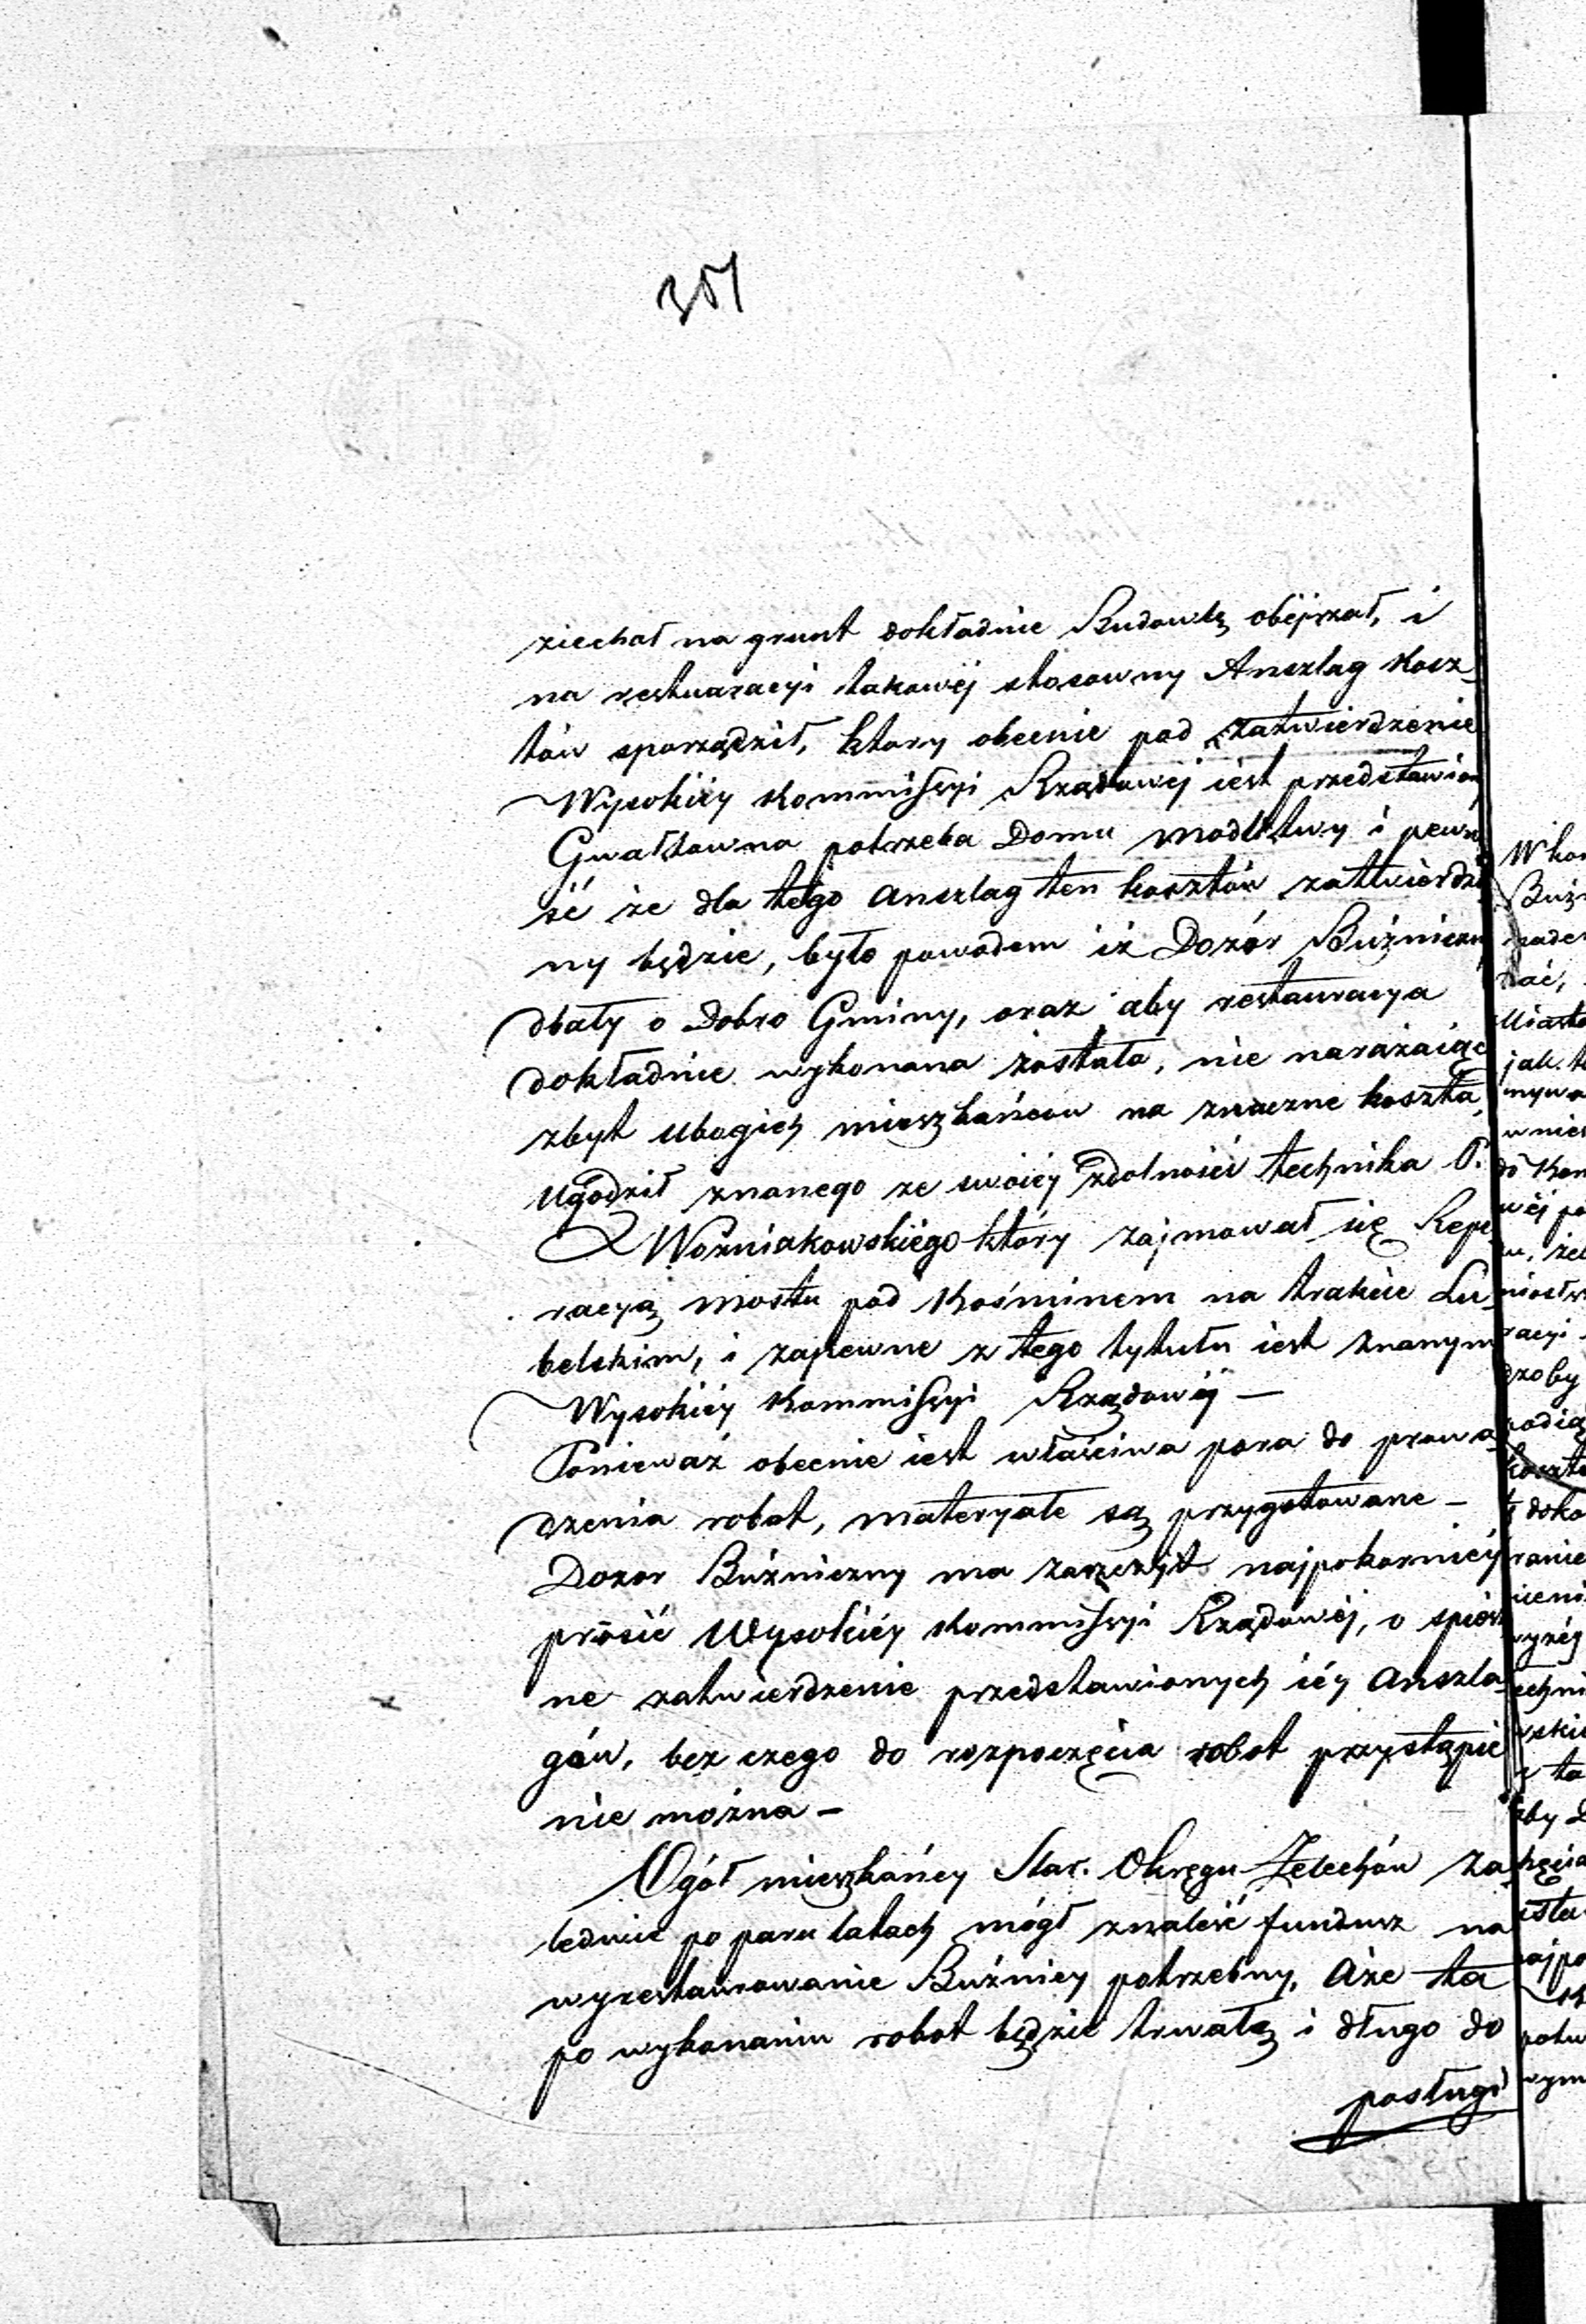 351
ziechał na grunt dokładnie Budowlę obéjrzał, i
na restuaracyi takowéj stosowny Anszlag kosz-
tów sporządził, ktory obecnie pod zatwierdzenie
Wysokiéy Kommissyi Rządowéj iest przedstawion
Gwałtowna potrzeba Domu modlitwy i pewno
ść że dla tego anszlag ten kosztów zatwierdzo
ny będzie, było powodem iż Dozór Bużniczny
dbały o Dobro Gminy, oraz aby restauracya
dokładnie wykonana została, nie narażaiąc
zbyt ubogich mieszkańcow na znaczne koszta,
ugodził znanego ze swoiéy zdolności technika P.
Woźniakowskiégo który zajmował się Repe
racyą mostu pod Kośminem na trakcie Lu-
belskim, i zapewne z tego tytułu iest znanym
Wysokiéy Kommissyi Rządowéj —
Ponieważ obecnie iest właściwa pora do prowa
dzenia robot, materyałe są przygotowane —
Dozor Bużniczny ma zaszczyt najpokorniéy
prosić Wysokiéy Kommissyi Rządowéj, o spiesz
ne zatwierdzenie przedstawionych iéy anszla-
gów, bez czego do rozpoczęcia robot przystąpić
nie można —
Ogół mieszkańcy Star. Okręgu Żelechów za
ledwie po paru latach mógł znaleść fundusz na
wyrestaurowanie Bużnicy potrzebny, Aże ta
po wykonaniu robot będzie trwałą i długo do
posługi